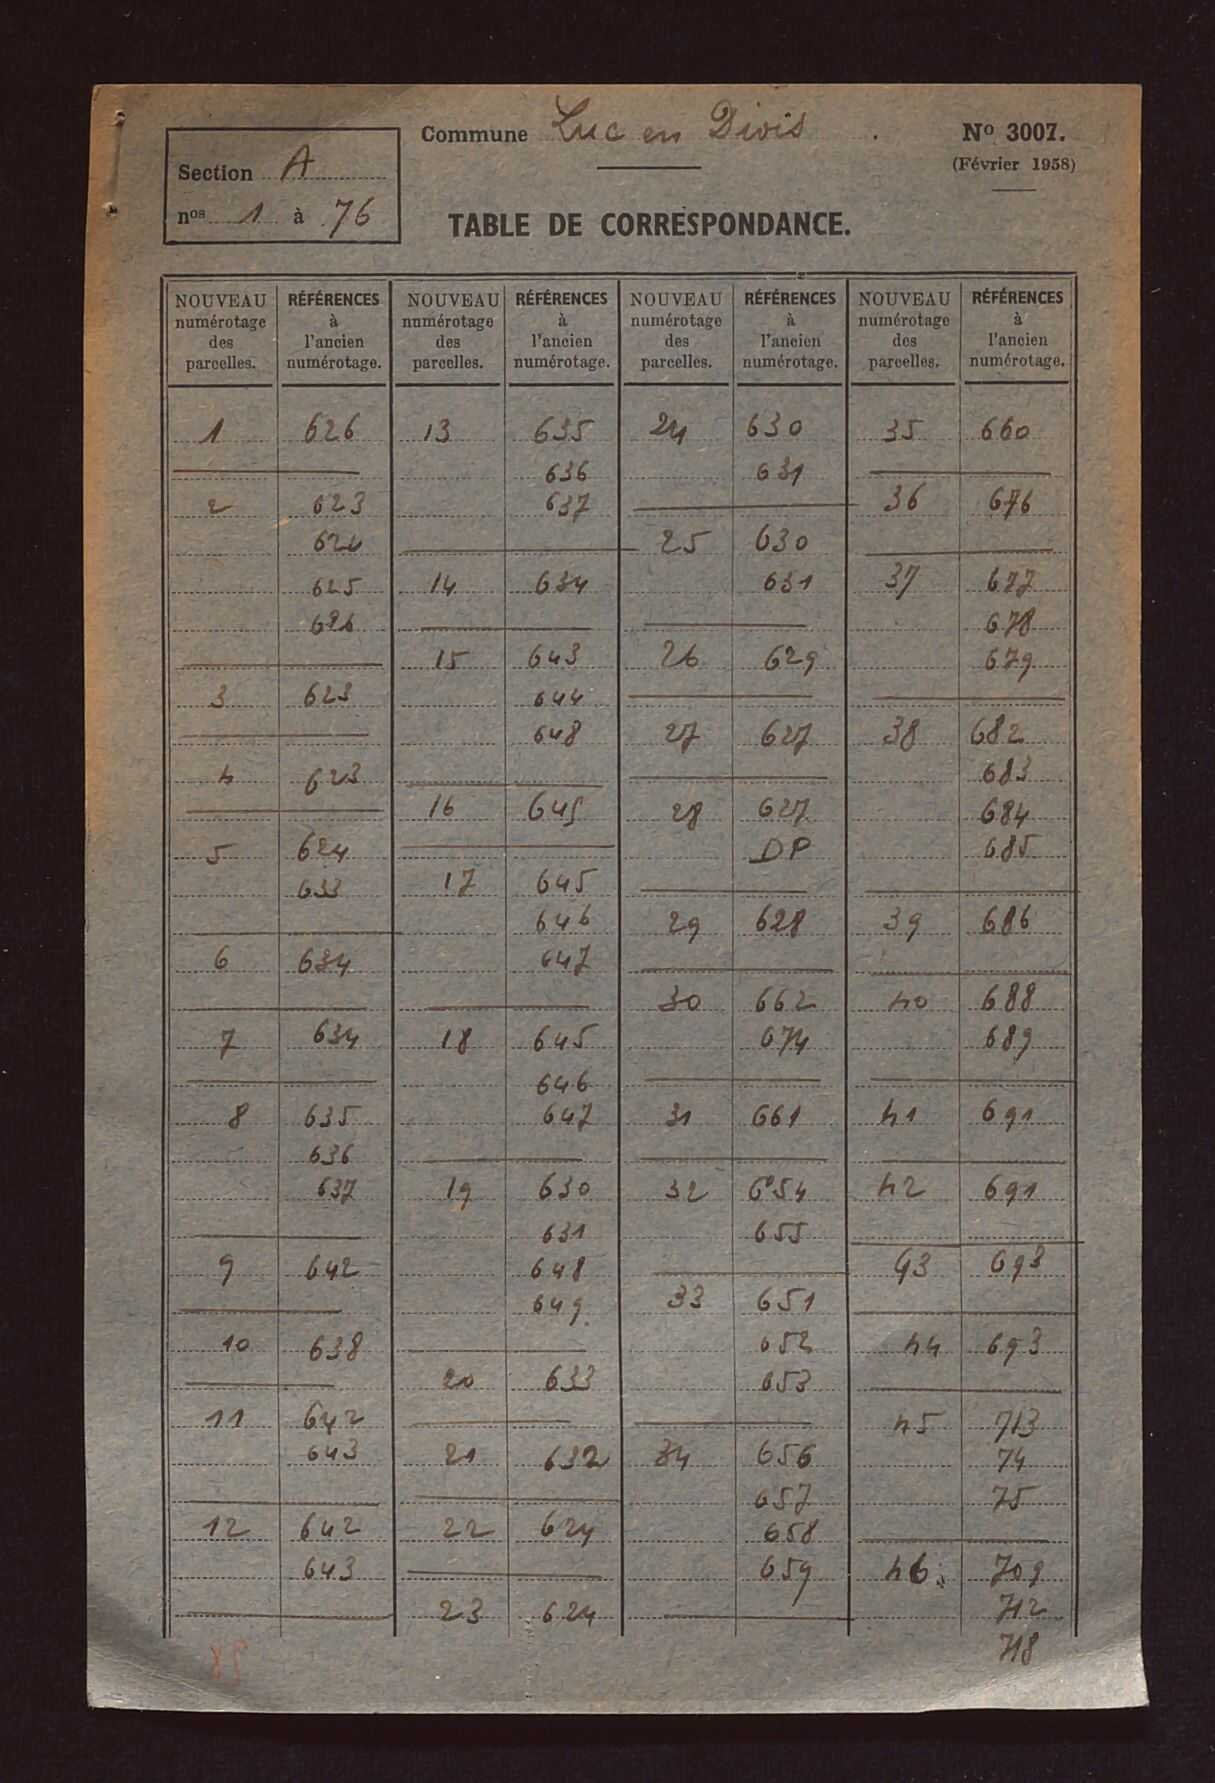 Section A
nos 1 à 76
Commune Luc en Diois
No 3007.
(Février 1958)
TABLE DE CORRESPONDANCE.
NOUVEAU
numérotage
des
parcelles.
RÉFÉRENCES
à
l'ancien
numérotage.
1 626
2 623
624
625
626
3 623
4 623
5 624
633
6 634
7 634
8 635
636
637
9 642
10 638
11 642
643
12 642
643
NOUVEAU
numérotage
des
parcelles.
RÉFÉRENCES
à
l'ancien
numérotage.
13 635
636
637
14 634
15 643
644
648
16 645
17 645
646
647
18 645
646
647
19 630
631
648
649
20 633
21 632
22 624
23 624
NOUVEAU
numérotage
des
parcelles.
RÉFÉRENCES
à
l'ancien
numérotage.
24 630
631
25 630
631
26 629
27 627
28 627
DP
29 628
30 662
674
31 661
32 654
655
33 651
652
653
34 656
657
658
659
NOUVEAU
numérotage
des
parcelles.
RÉFÉRENCES
à
l'ancien
numérotage.
35 660
36 676
37 677
678
679
38 682
683
684
685
39 686
40 688
689
41 691
42 691
43 693
44 693
45 713
74
75
46 709
712
718